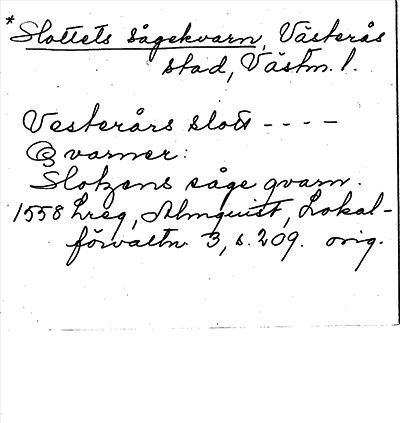 *Slottets sågekvarn, Västerås
stad, Västm. l.
Vesterårs slott - - - -
Qvarner:
Slotzens såge qvarn.
1558 Lreg, Almquist, Lokal-
förvaltn 3, s. 209. orig.